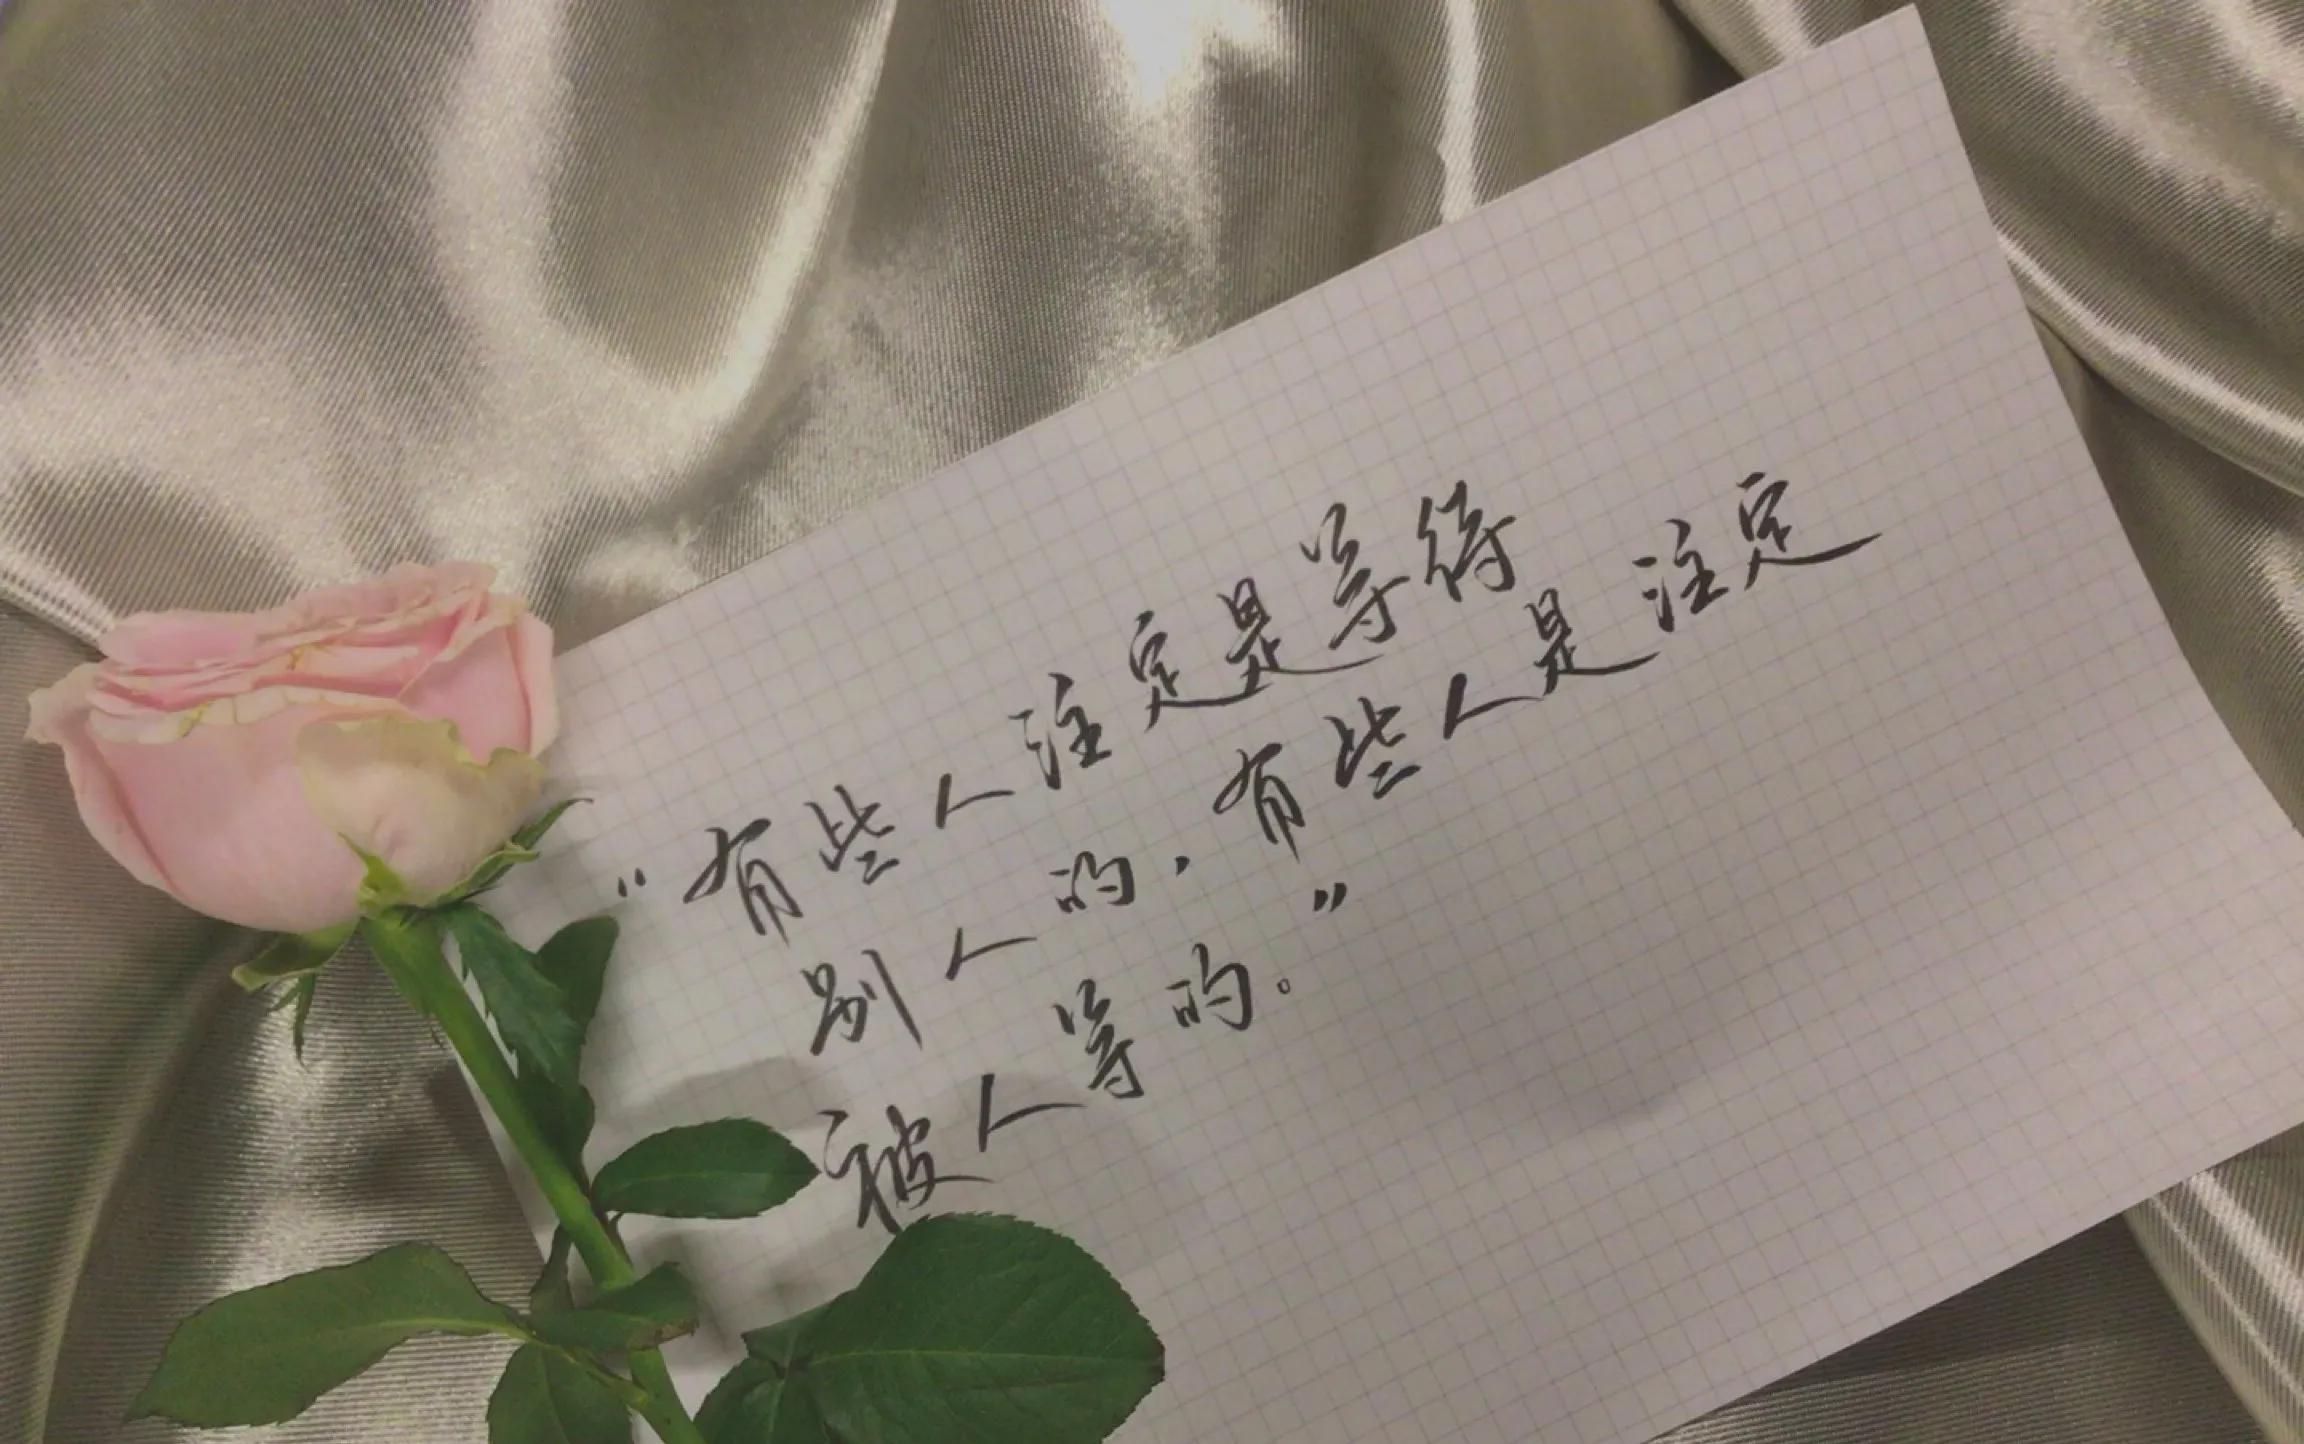 “有些人注定是等待
别人的，有些人是注定
被人等的。”